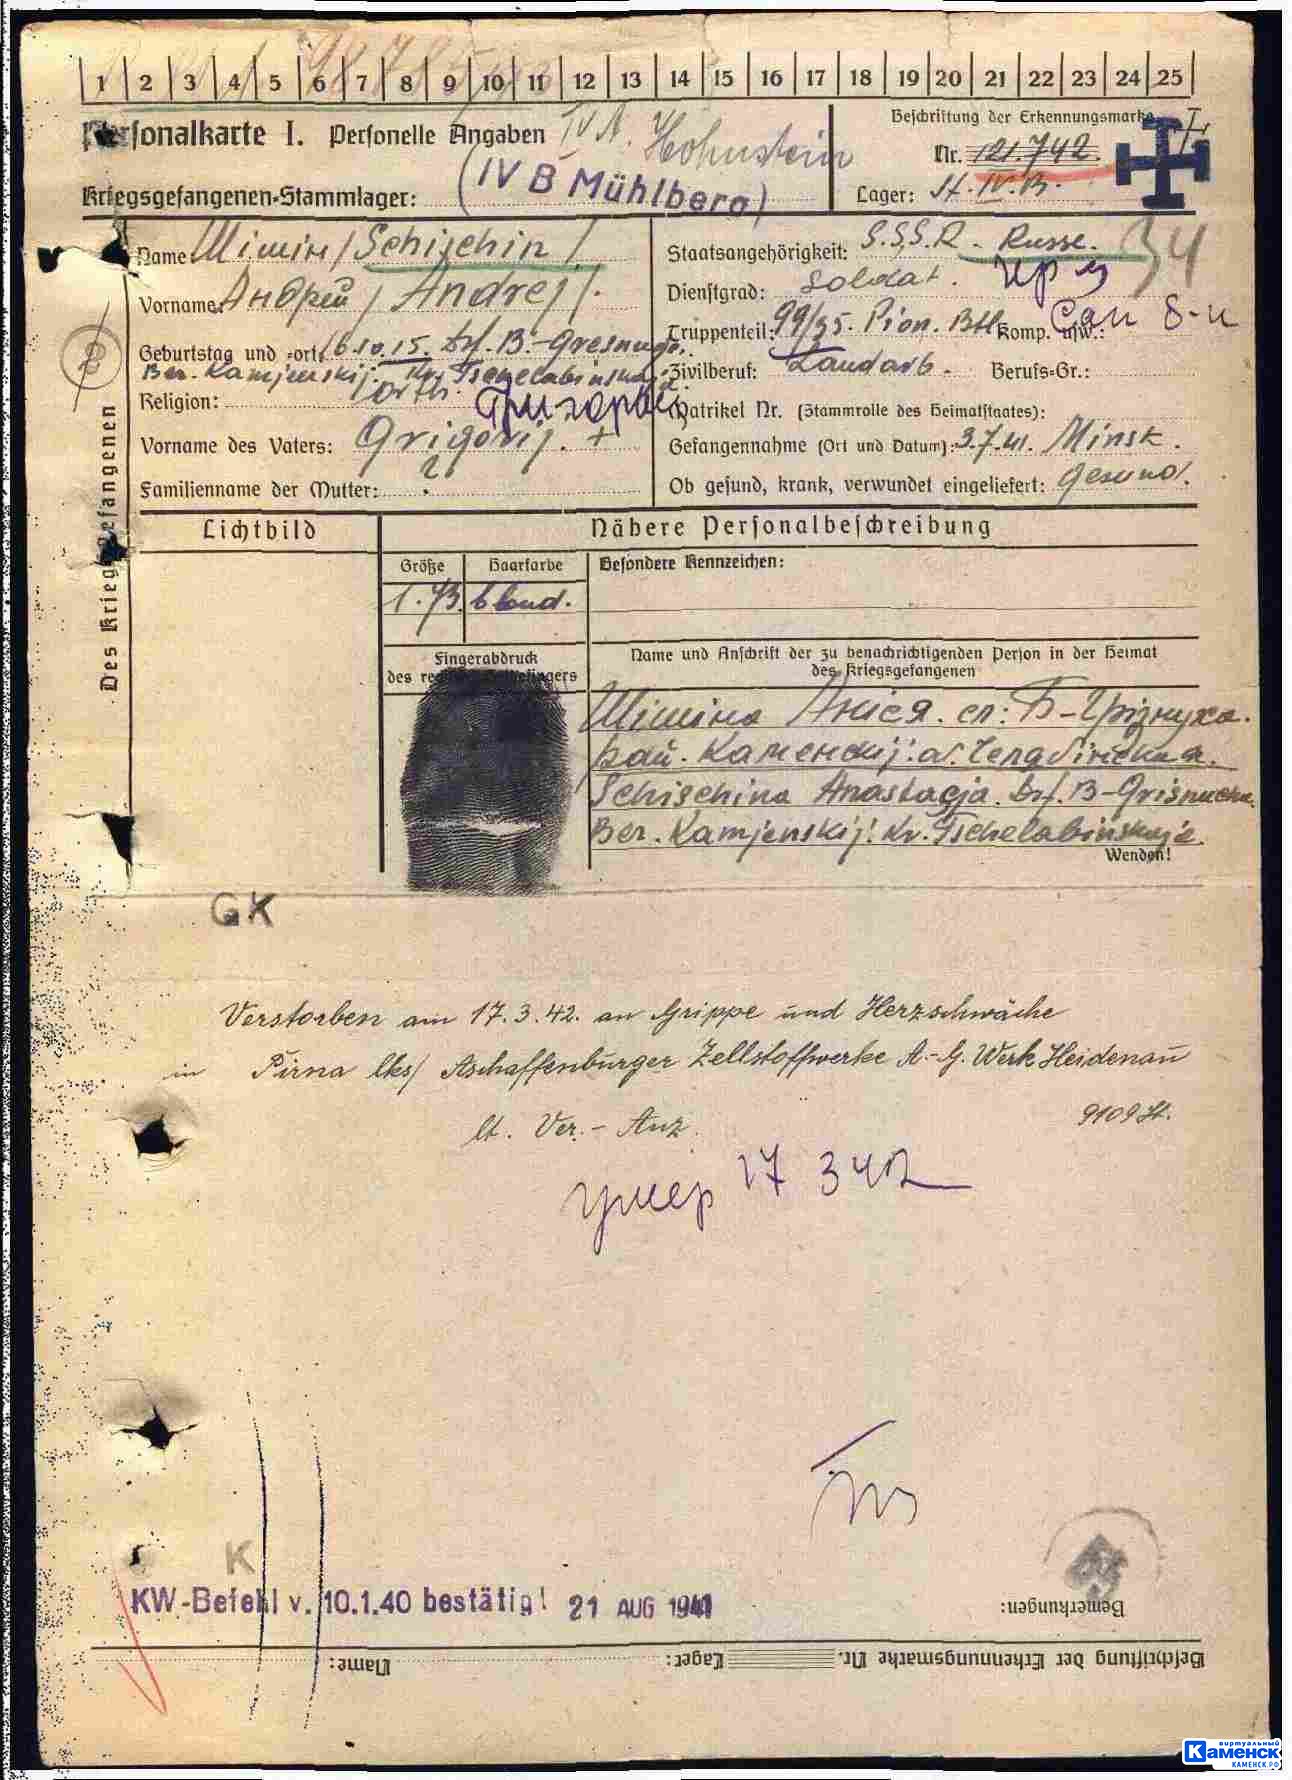 1 2 3 4 5 6 7 8 9 10 11 12 13 14 15 16 17 18 19 20 21 22 23 24 25
Personalkarte I. Personelle Angaben
IV A. Hohnstein
Beschriftung der Erkennungsmarke
Nr. 121.742.
Kriegsgefangenen-Stammlager: (IV B Mühlberg)
Lager: St. IV.B.
Des Kriegsgefangenen
Name: Шишін / Schischin /
Vorname: Андрей / Andrej /.
Geburtstag und -ort: 6.10.15. Drf. B.-Gresnucha.
Ber. Kamjenskij. Kr. Tschelabinskaja.
Religion: orth.
Григорий
Vorname des Vaters: Grigorij. +
Familienname der Mutter: ?
Staatsangehörigkeit: S.S.S.R. Russe.
34
Dienstgrad: Soldat.
Truppenteil: 99/95. Pion. Btl. Komp. usw.:
Zivilberuf: Landarb. Berufs-Gr.:
Matrikel Nr. (Stammrolle des Heimatstaates):
Gefangennahme (Ort und Datum): 3.7.41. Minsk.
Ob gesund, krank, verwundet eingeliefert: gesund.
Lichtbild
Nähere Personalbeschreibung
Größe
Haarfarbe
Besondere Kennzeichen:
1.73. blond.
Fingerabdruck
des rechten Zeigefingers
Name und Anschrift der zu benachrichtigenden Person in der Heimat
des Kriegsgefangenen
Шишіна
Schischina Anastasja. Drf. B-Grisnucha.
Ber. Kamjenskij. Kr. Tschelabinskaje.
Wenden!
GK
Verstorben am 17.3.42. an Grippe und Herzschwäche
in Pirna lks/ Aschaffenburger Zellstoffwerke A.-G. Werk Heidenau
lt. Ver.- Anz.
9109 St.
умер 17 3 42
K
KW-Befehl v. 10.1.40 bestätigt 21 AUG 1941
Bemerkungen:
Beschriftung der Erkennungsmarke Nr. Lager: Name:
виртуальный
Каменск
КАМЕНСК.РФ